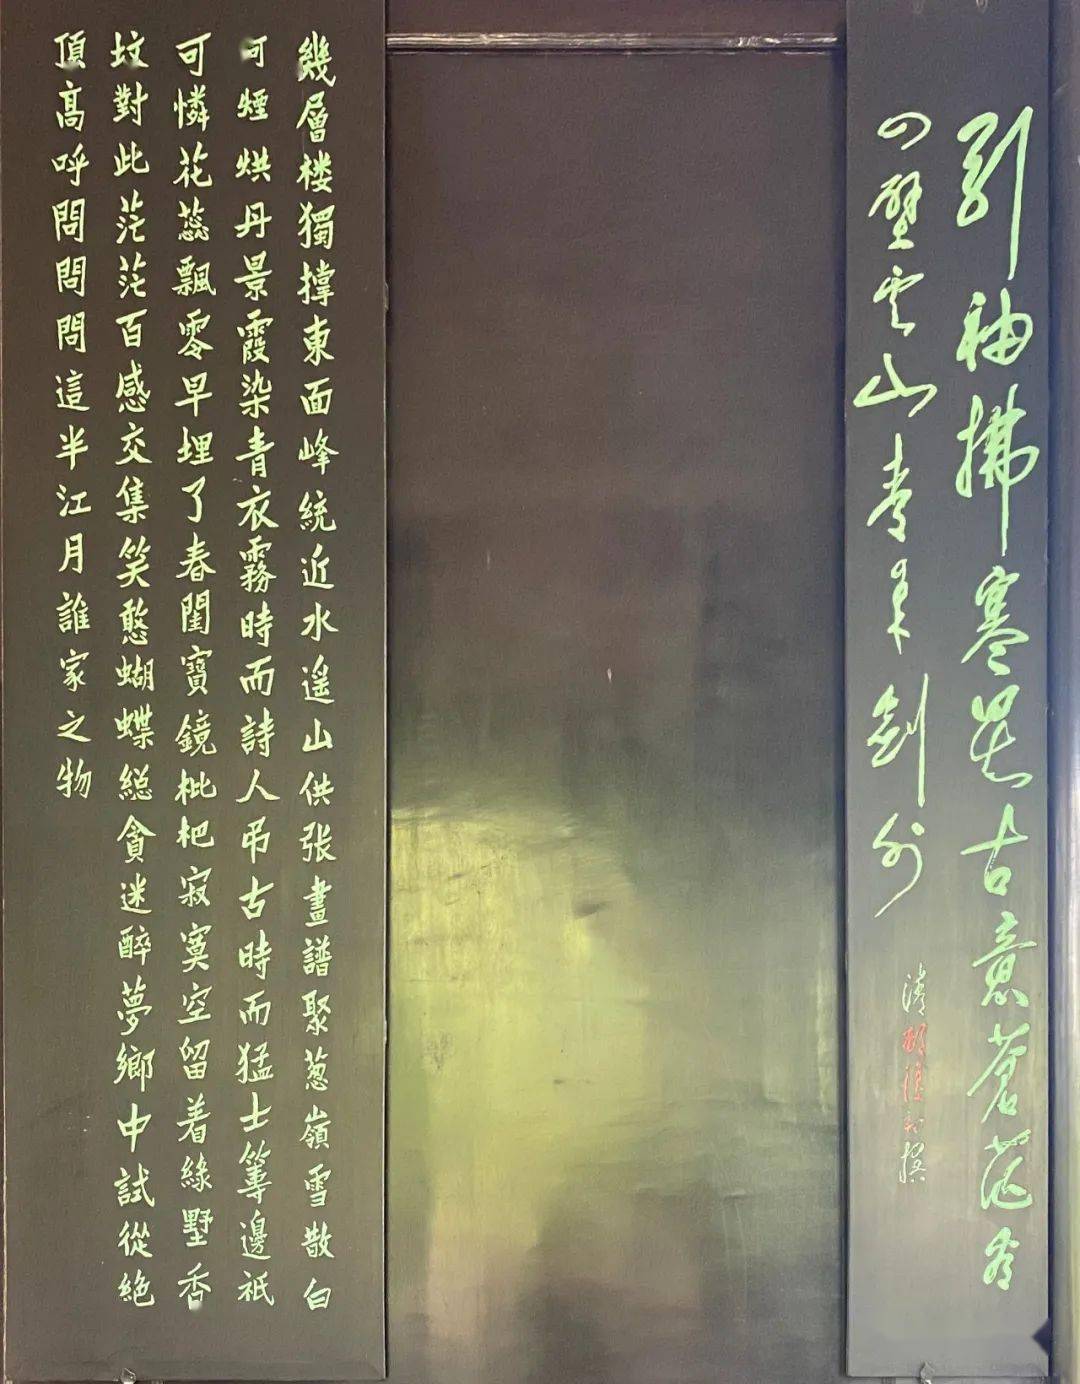 引袖拂寒星古意蒼茫看
四壁云山青来剑外
清顧復初撰
幾層楼獨撑東面峰統近水遥山供张畫譜聚葱嶺雪散白
河煙烘丹景霞染青衣霧時而詩人吊古時而猛士籌邊祇
可憐花蕊飄零早埋了春閨寶鏡枇杷寂寞空留着緑墅香
坟對此茫茫百感交集笑憨蝴蝶緫貪迷醉夢鄉中試從絶
頂高呼問問問這半江月誰家之物